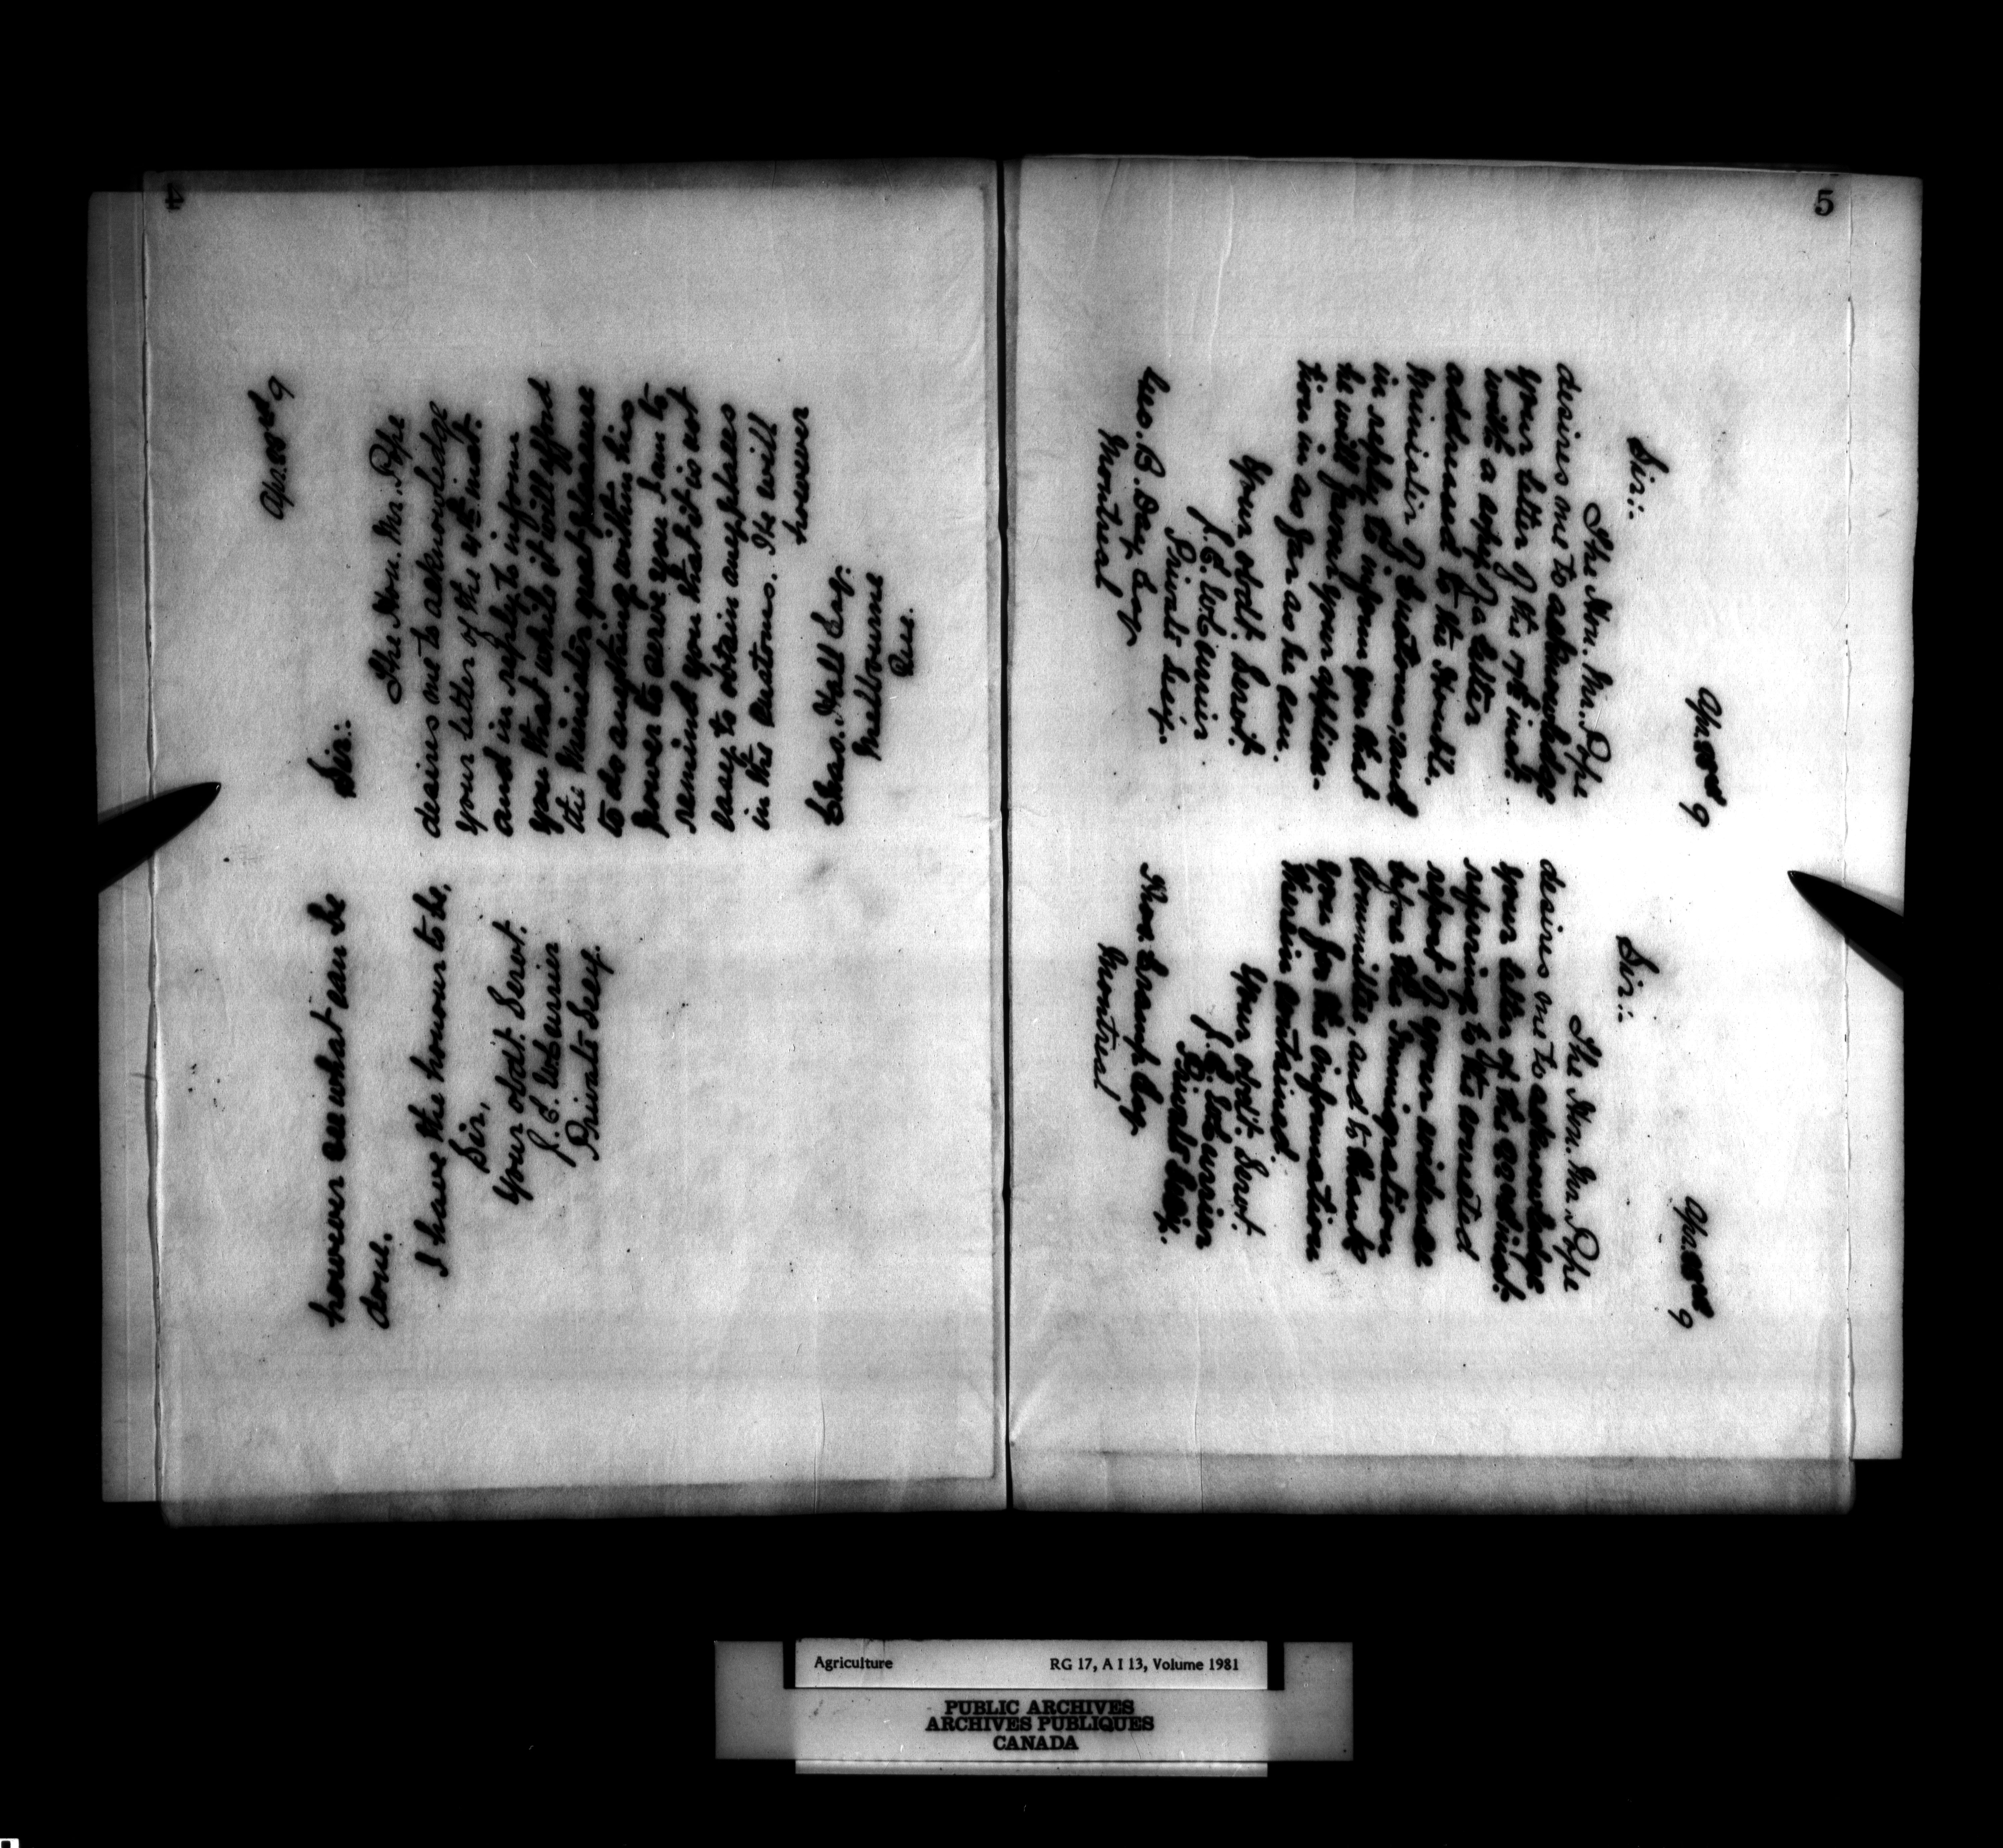 4
Apr. 22nd 9
Sir:
The Hon. Mr. Pope
desires me to acknowledge
your letter of the 9th inst.
and in reply to inform
you that while it will afford
the Minister great pleasure
to do anything within his
power to serve you I am to
remind you that it is not
easy to obtain any places
in the Customs. He will
however
Chas. Hall Esq.
Melbourne
Que.
however see what can be
done.
I have the honour to be,
Sir,
Your obdt. Servt.
Private Secy.
5
Apr. 22nd 9
Sir:
The Hon. Mr. Pope
desires me to acknowledge
your letter of the 17th inst.
with a copy of a letter
addressed to the Honble.
Minister of Customs, and
in reply to inform you that
he will favour your applica-
tion in as far as he can.
Your obdt. Servt.
Private Secy.
Day Esq
Montreal
Apr. 22nd 9
Sir:
The Hon. Mr. Pope
desires me to acknowledge
your letter of the inst.
referring to the corrected
report of your evidence
before the Immigration
Committee, and to thank
you for the information
therein contained.
Your obdt. Servt.
Private Secy.
Thos. Cramp Esq.
Montreal
Agriculture RG 17, A I 13, Volume 1981
PUBLIC ARCHIVES
ARCHIVES PUBLIQUES
CANADA